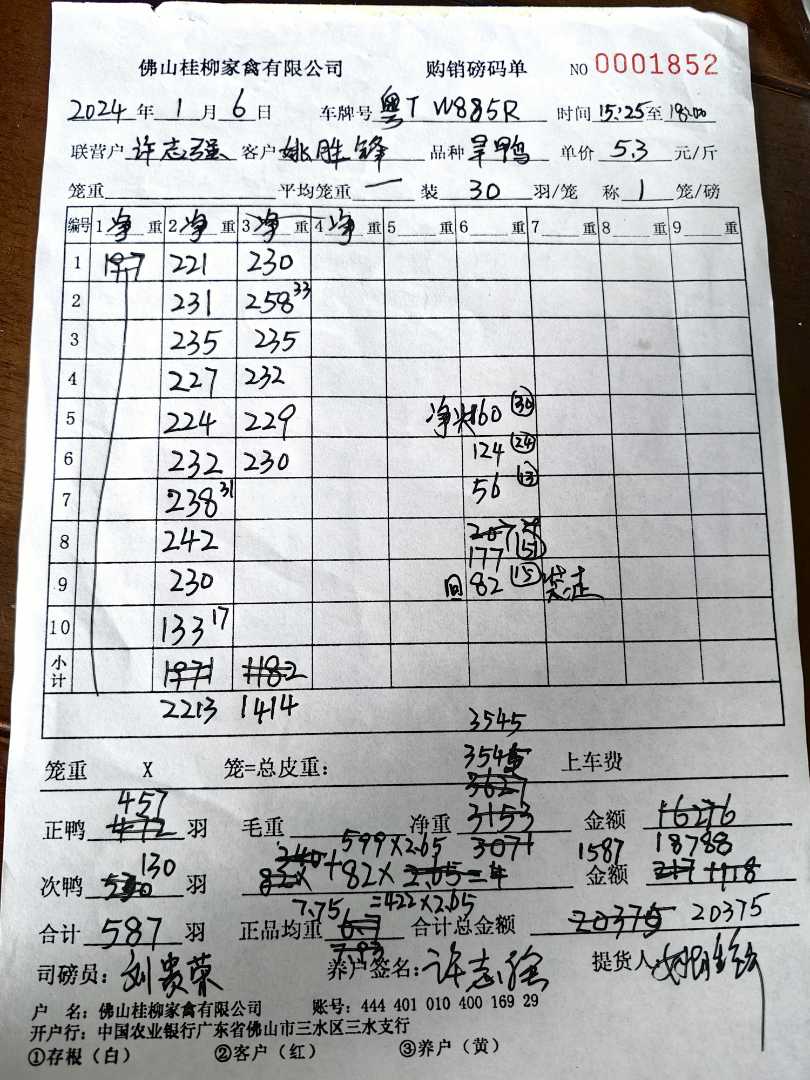 佛山桂柳家禽有限公司 购销磅码单 NO 0001852
2024 年 1 月 6 日 车牌号 粤T W885R 时间 15:25 至 18:00
联营户 许志强 客户 姚胜锋 品种 旱鸭 单价 5.3 元/斤
笼重 平均笼重 一 装 30 羽/笼 称 1 笼/磅
编号 1 净 重 2 净 重 3 净 重 4 净 重 5 重 6 重 7 重 8 重 9 重
1 197 221 230
2 231 258 33
3 235 235
4 227 232
5 224 229 净 160 30
6 232 230 124 24
7 238 31 56 13
8 242 207 177
9 230 回 82 15 走
10 133 17
小计 1971 1182
2213 1414
3545
笼重 X 笼=总皮重: 3545 上车费
3627
457
正鸭 472 羽 毛重 净重 3153 金额 16276
599×2.65 3071 1587 18788
130
次鸭 羽 340 82× +82× 2.65= 金额 217 1118
7.75 =422×2.65
合计 587 羽 正品均重 6.7 合计总金额 20375 20375
7.93
司磅员: 刘贵荣 养户签名: 许志强 提货人: 姚胜锋
户 名: 佛山桂柳家禽有限公司 账号: 444 401 010 400 169 29
开户行: 中国农业银行广东省佛山市三水区三水支行
①存根（白） ②客户（红） ③养户（黄）